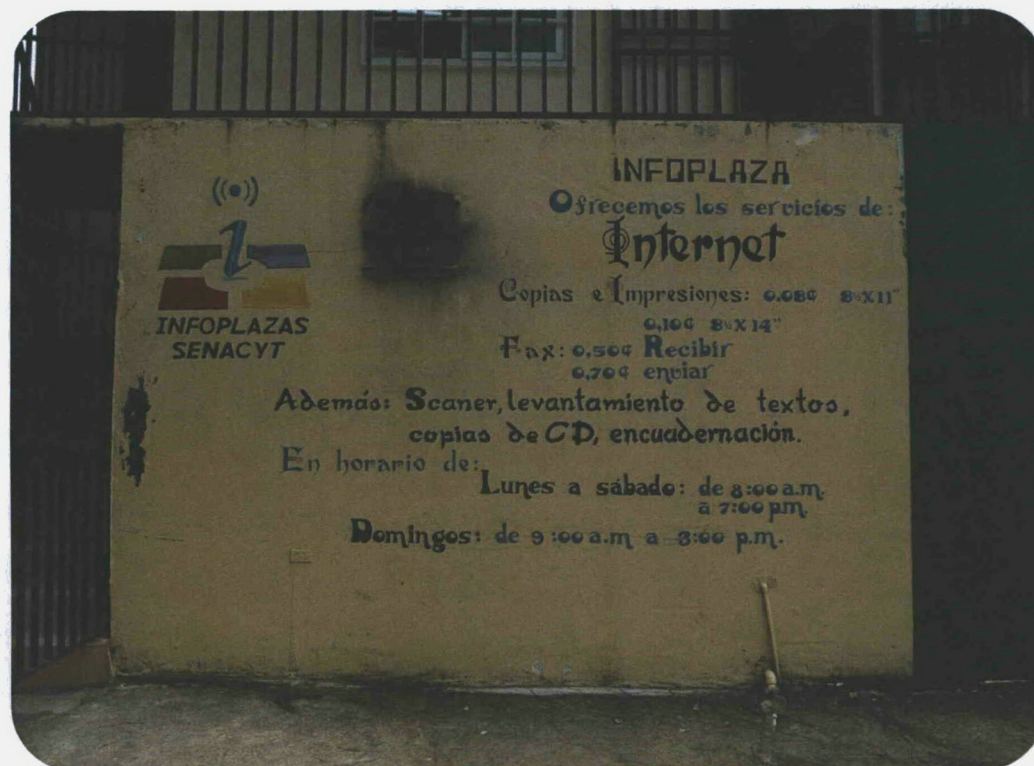 INFOPLAZAS
SENACYT
INFOPLAZA
Ofrecemos los servicios de:
Internet
Copias e Impresiones: 0.08¢ 8½X11"
0,10¢ 8½X14"
Fax: 0,50¢ Recibir
0,70¢ enviar
Además: Scaner, levantamiento de textos,
copias de CD, encuadernación.
En horario de:
Lunes a sábado: de 8:00 a.m.
a 7:00 p.m.
Domingos: de 9:00 a.m a 3:00 p.m.